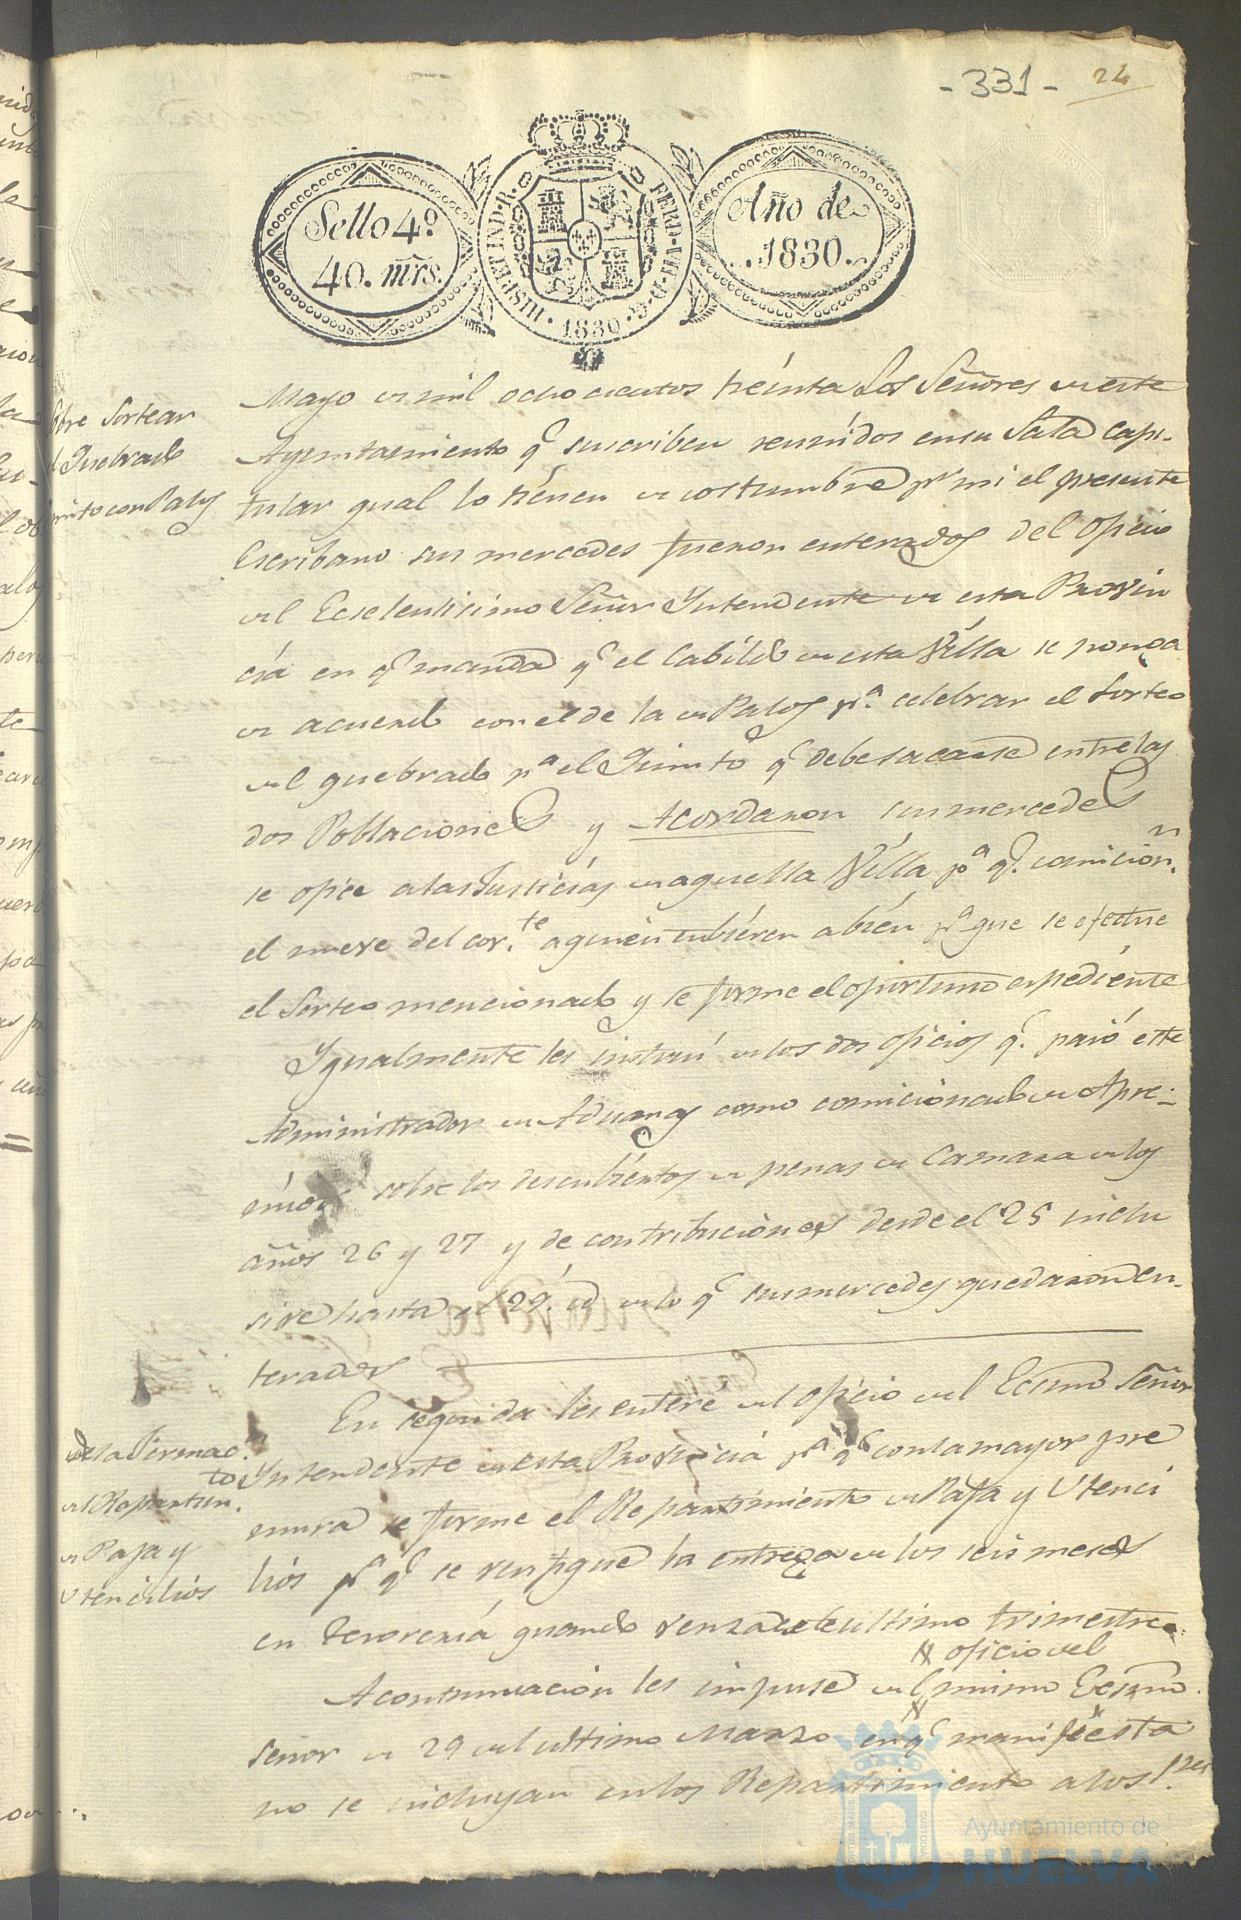 - 331 - 24
Sello 4º
40. mrs.
HISP. ET IND. R. FERD. VII. D. G. 1830
Año de
1830.
Mayo de mil ochocientos treinta Los Señores de este
Ayuntamiento q.e suscriben reunidos en su Sala Capi-
tular qual lo tienen de costumbre pr mi el presente
Escribano sus mercedes fueron enterados del Oficio
del Ecselentisimo Señor Yntendente de esta Provin
cia en q.e manda q.e el Cabildo de esta Villa se ponga
de acuerdo con el de la de Palos p.a celebrar el Sorteo
del quebrado p.a el Quinto q.e debe sacarse entre las
dos Poblaciones y Acordaron sus mercedes
se oficie a las Justicias de aquella Villa p.a q.e comicion.n
el nueve del cor.te a quien tubieren a bien p.a que se efectue
el Sorteo mencionado y se forme el oportuno espediente
Ygualmente les instruí de los dos oficios q.e pasó este
Administrador de Aduanas como comicionado de Apre-
mios sobre los descubiertos de penas de Camara de los
años 26 y 27 y de contribuciones desde el 25 inclu
sive hasta el 29. de lo q.e sus mercedes quedaron en-
terados
En seguida les enteré del oficio del Ecsmo Señor
Yntendente de esta Provincia p.a q.e con la mayor pre
mura se forme el Repartimiento de Paja y Utenci
lios p.a q.e se verifique la entrega de los seis meses
en Tesorería quando venza este ultimo trimestre.
oficio del
A continuacion les impuse del mismo Ecsmo.
Señor de 29 del ultimo Marzo en q.e manifiesta
no se incluyan en los Repartimiento a los
Sobre Sortear
el Quebrado
quinto con Palos
de la Firmac.n
del Repartim.to
de Paja y
Utencilios
Ayuntamiento de
HUELVA